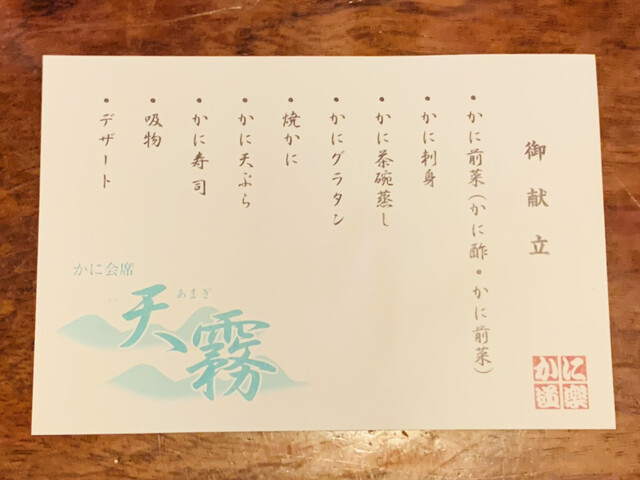 御献立
・かに前菜(かに酢・かに前菜)
・かに刺身
・かに茶碗蒸し
・かにグラタン
・焼かに
・かに天ぷら
・かに寿司
・吸物
・デザート
かに会席
あまぎり
天霧
かに
道楽